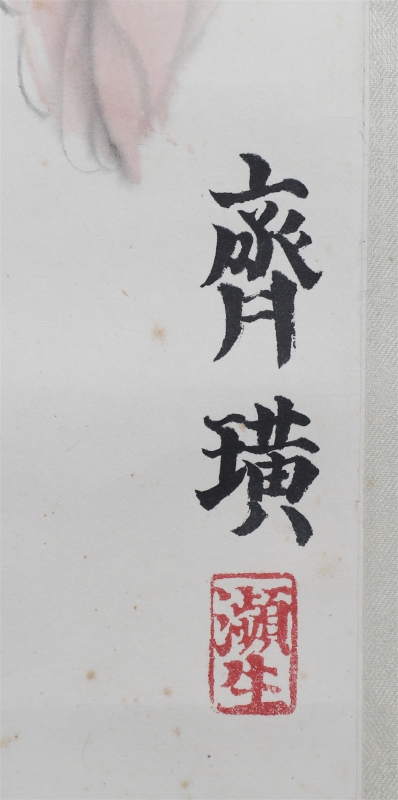 齊璜
瀕生